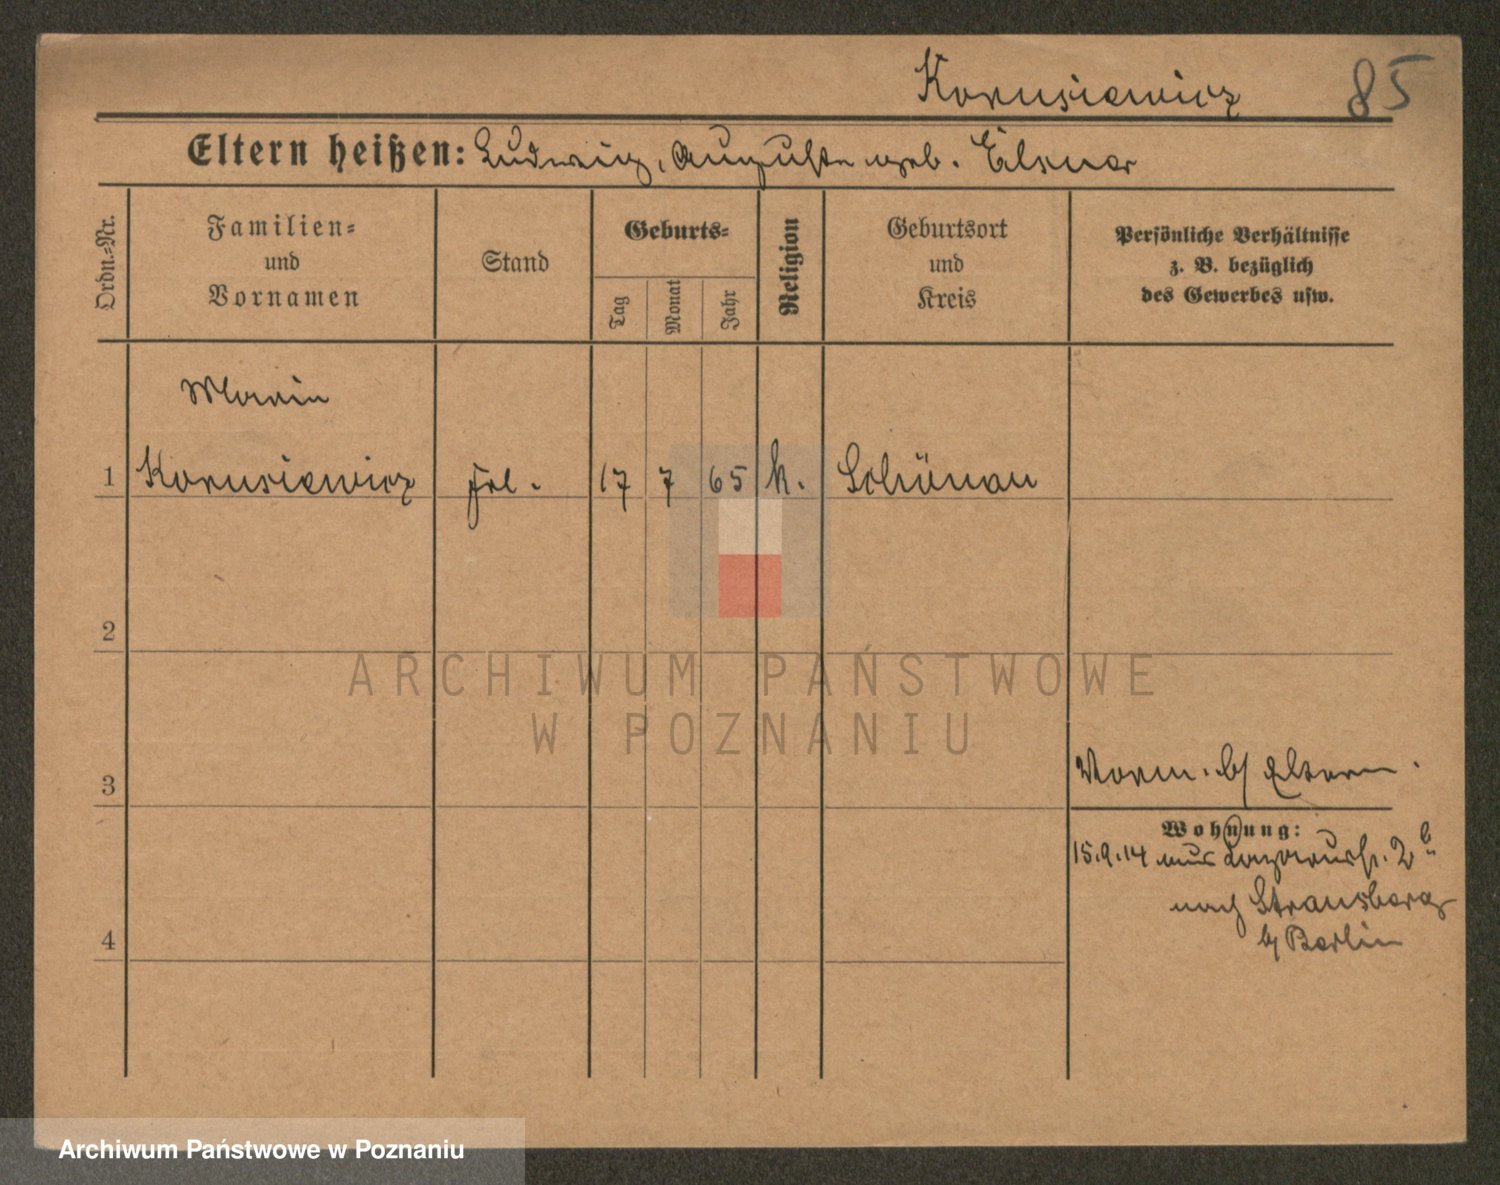 Korusiewicz 85
Eltern heißen: Ludwig, Auguste geb. Elsner
Ordn.-Nr.
Familien-
und
Vornamen
Stand
Geburts-
Tag
Monat
Jahr
Religion
Geburtsort
und
Kreis
Persönliche Verhältnisse
z. B. bezüglich
des Gewerbes usw.
Maria
1 Korusiewicz Frl. 17 7 65 k. Schönau
2
ARCHIWUM PAŃSTWOWE
W POZNANIU
3
Vorm. b/ Eltern.
Wohnung:
15.9.14 aus Lazarusstr. 2b
nach Strausberg
b/ Berlin
4
Archiwum Państwowe w Poznaniu